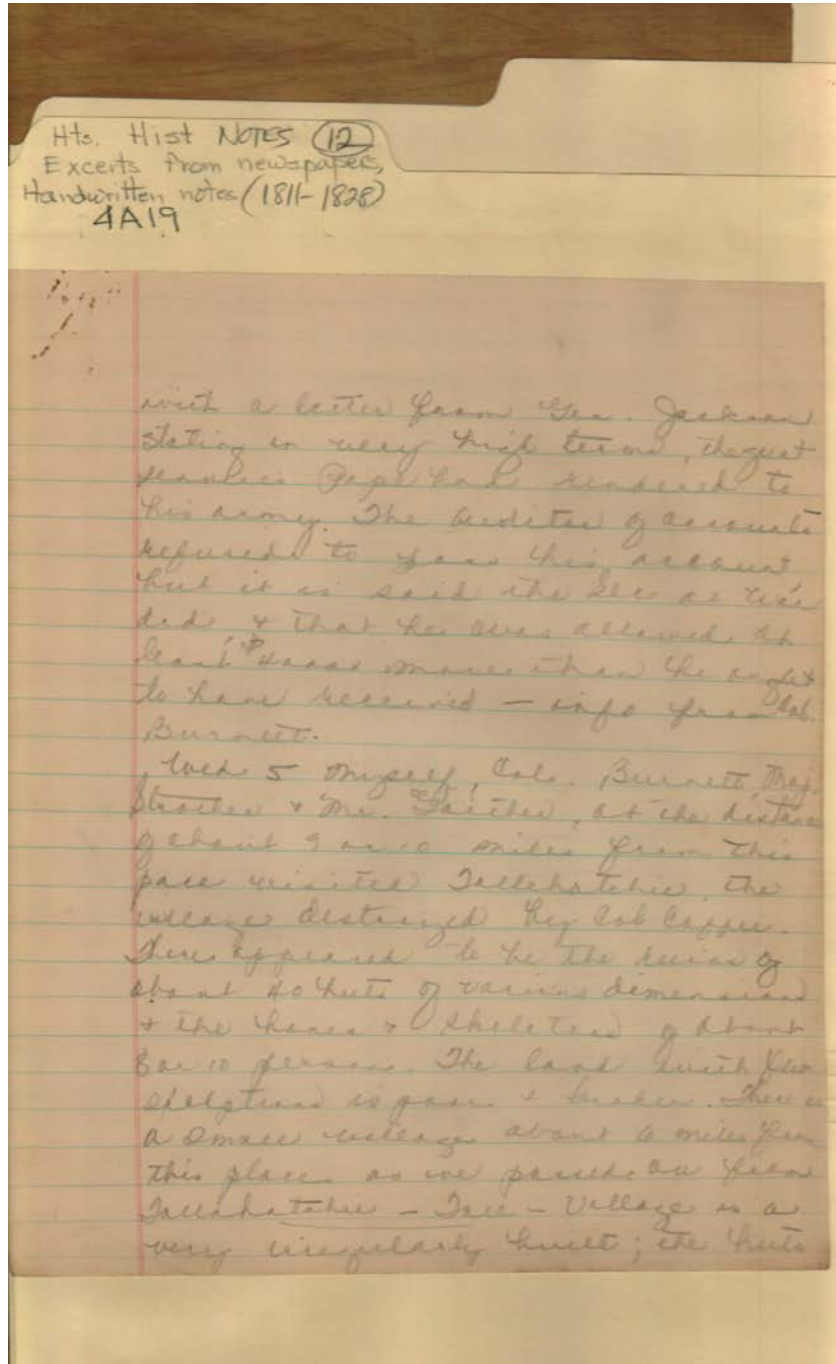 Hts. Hist NOTES (12)
Excerts from newspapers,
Handwritten notes (1811-1828)
4A19
with a letter from Gen. Jackson
stating in very high terms, the great
services Pope had rendered to
his army. The Auditor of accounts
refused to pass his account,
but it is said the Sec of War
did, & that he was allowed at
least $4000 more than he ought
to have received — info from Col.
Burnett.
Wed 5 Myself, Col. Burnett, Maj.
Strother & Mr. Gaither, at the distance
of about 9 or 10 miles from this
pace visited Tallehatchie, the
village destroyed by Col Coffee.
There appeared to be the ruins of
about 40 huts of various dimensions
& the bones & skeletons of about
8 or 10 persons. The land with few
is poor & broken. There is
a small village about 6 miles from
this place as we passed on from
Tallahatchee — Village is a
very irregularly built; the huts